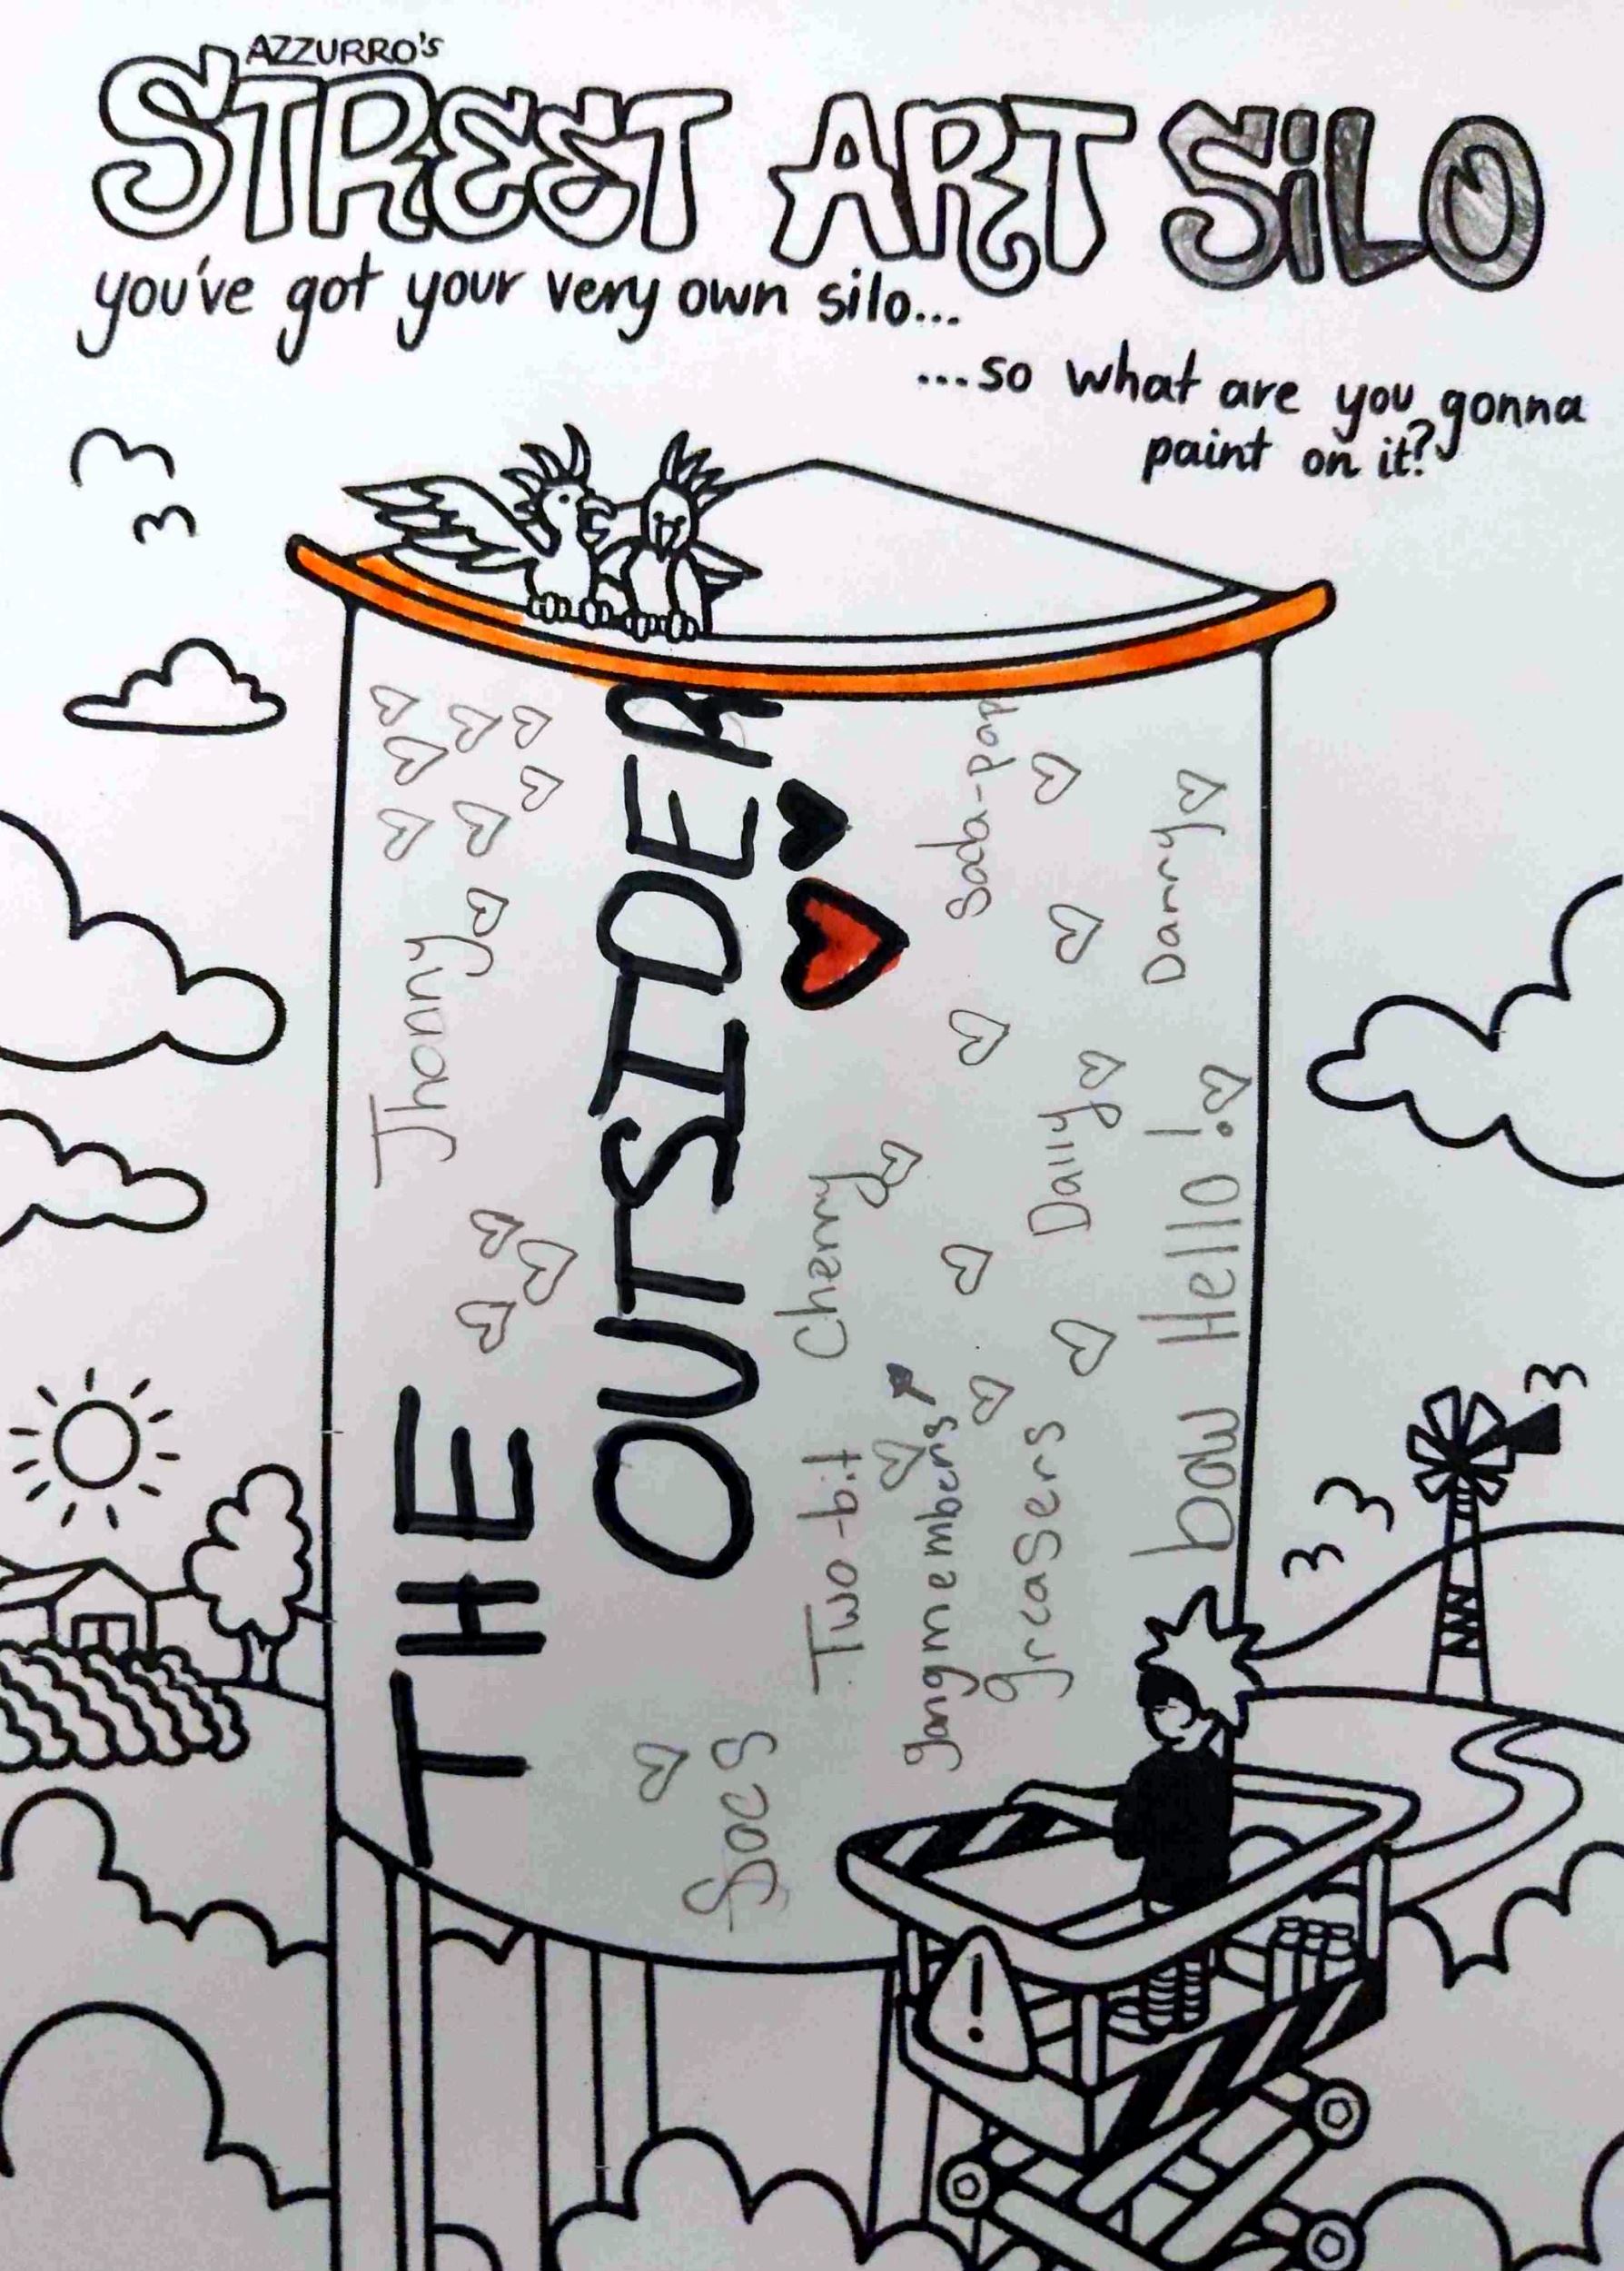 AZZURRO'S
STREET ART SiLO
you've got your very own silo...
...so what are you gonna
paint on it?
THE
OUTSIDER
Jhonny
Socs
Two-bit
Cherry
gangmembers
greasers
Soda-pop
Dally
Darry
bow Hello!
!